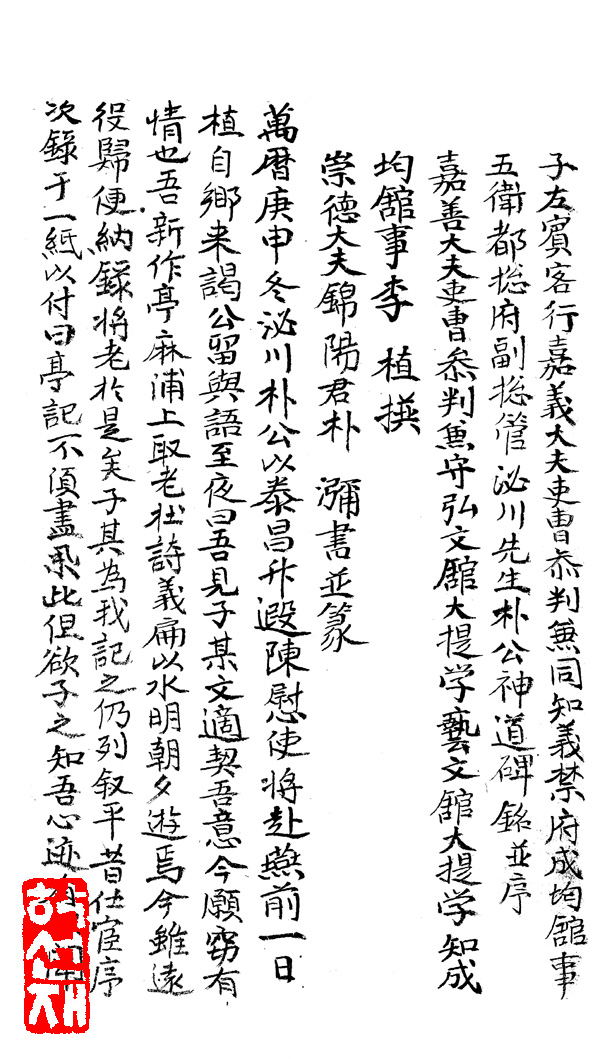 子左賓客行嘉義大夫吏曹叅判兼同知義禁府成均館事
五衛都摠府副摠管泌川先生朴公神道碑銘並序
嘉善大夫吏曹叅判兼守弘文館大提学藝文館大提学知成
均館事李 植撰
崇德大夫錦陽君朴 瀰書並篆
萬曆庚申冬泌川朴公以泰昌升遐陳慰使將赴燕前一日
植自鄉来謁公留與語至夜曰吾見子某文適契吾意今願窃有
情也吾新作亭麻浦上取老杜詩義扁以水明朝夕遊焉今雖遠
役歸便納錄將老於是矣子其為我記之仍列叙平昔仕宦序
次錄于一紙以付曰亭記不須盡用此但欲子之知吾心迹有
학선재